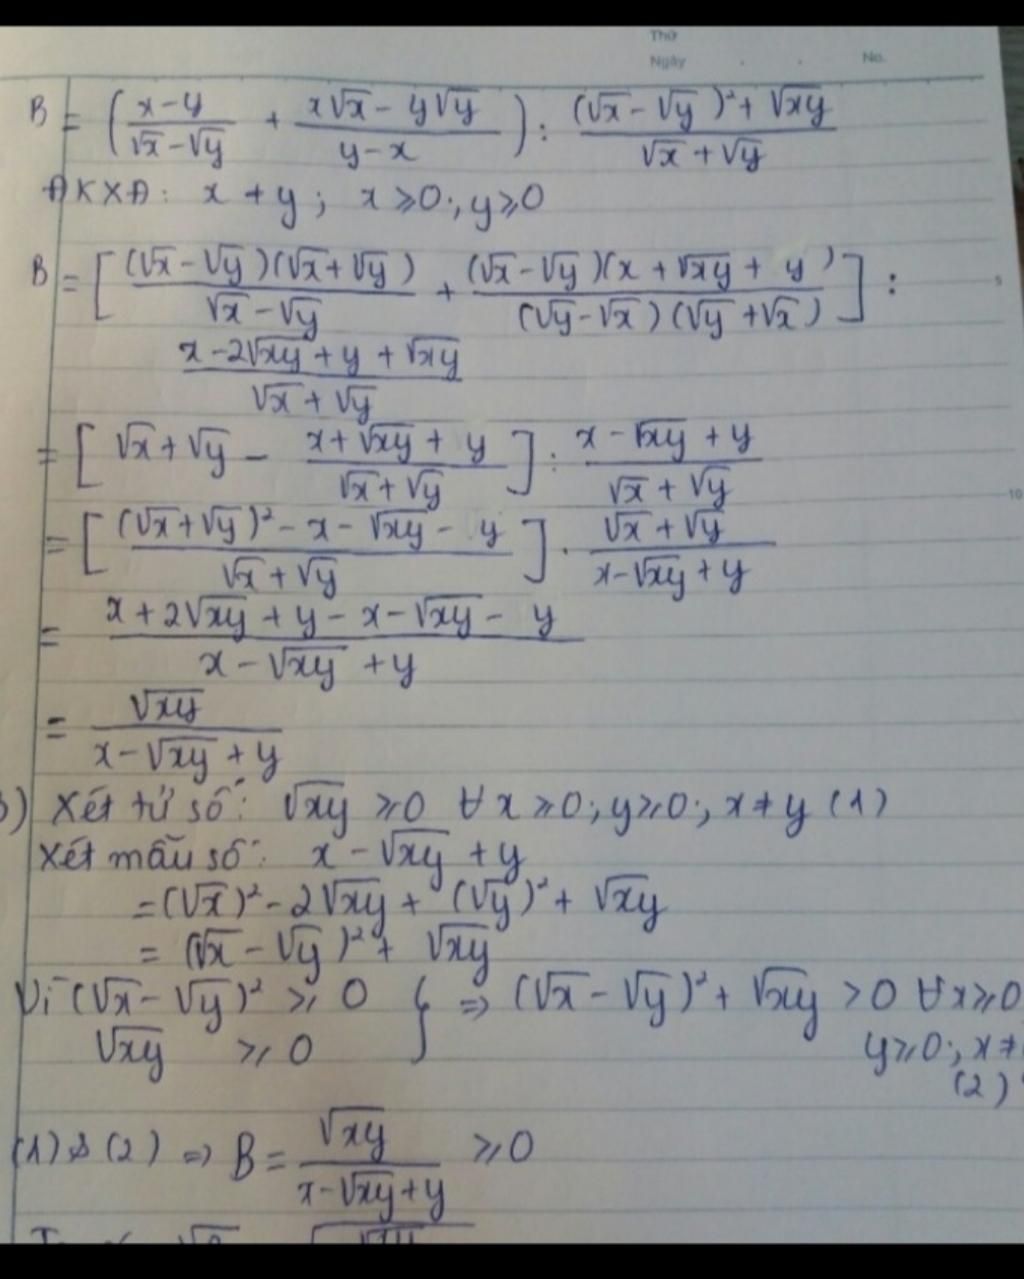 Thứ
Ngày . . No.
B = (x-y / √x-√y + x√x - y√y / y-x) : (√x - √y)² + √xy / √x + √y
ĐKXĐ: x ≠ y ; x ≥ 0 ; y ≥ 0
B = [(√x - √y)(√x + √y) / √x - √y + (√x - √y)(x + √xy + y) / (√y - √x)(√y + √x)] :
x - 2√xy + y + √xy / √x + √y
= [√x + √y - x + √xy + y / √x + √y] : x - √xy + y / √x + √y
= [(√x + √y)² - x - √xy - y / √x + √y] . √x + √y / x - √xy + y
= x + 2√xy + y - x - √xy - y / x - √xy + y
= √xy / x - √xy + y
) Xét tử số: √xy ≥ 0 ∀x ≥ 0 ; y ≥ 0 ; x ≠ y (1)
Xét mẫu số: x - √xy + y
= (√x)² - 2√xy + (√y)² + √xy
= (√x - √y)² + √xy
Vì (√x - √y)² ≥ 0 } => (√x - √y)² + √xy > 0 ∀x ≥ 0
√xy ≥ 0 y ≥ 0 ; x ≠
(2)
(1) & (2) => B = √xy / x - √xy + y ≥ 0
5
10